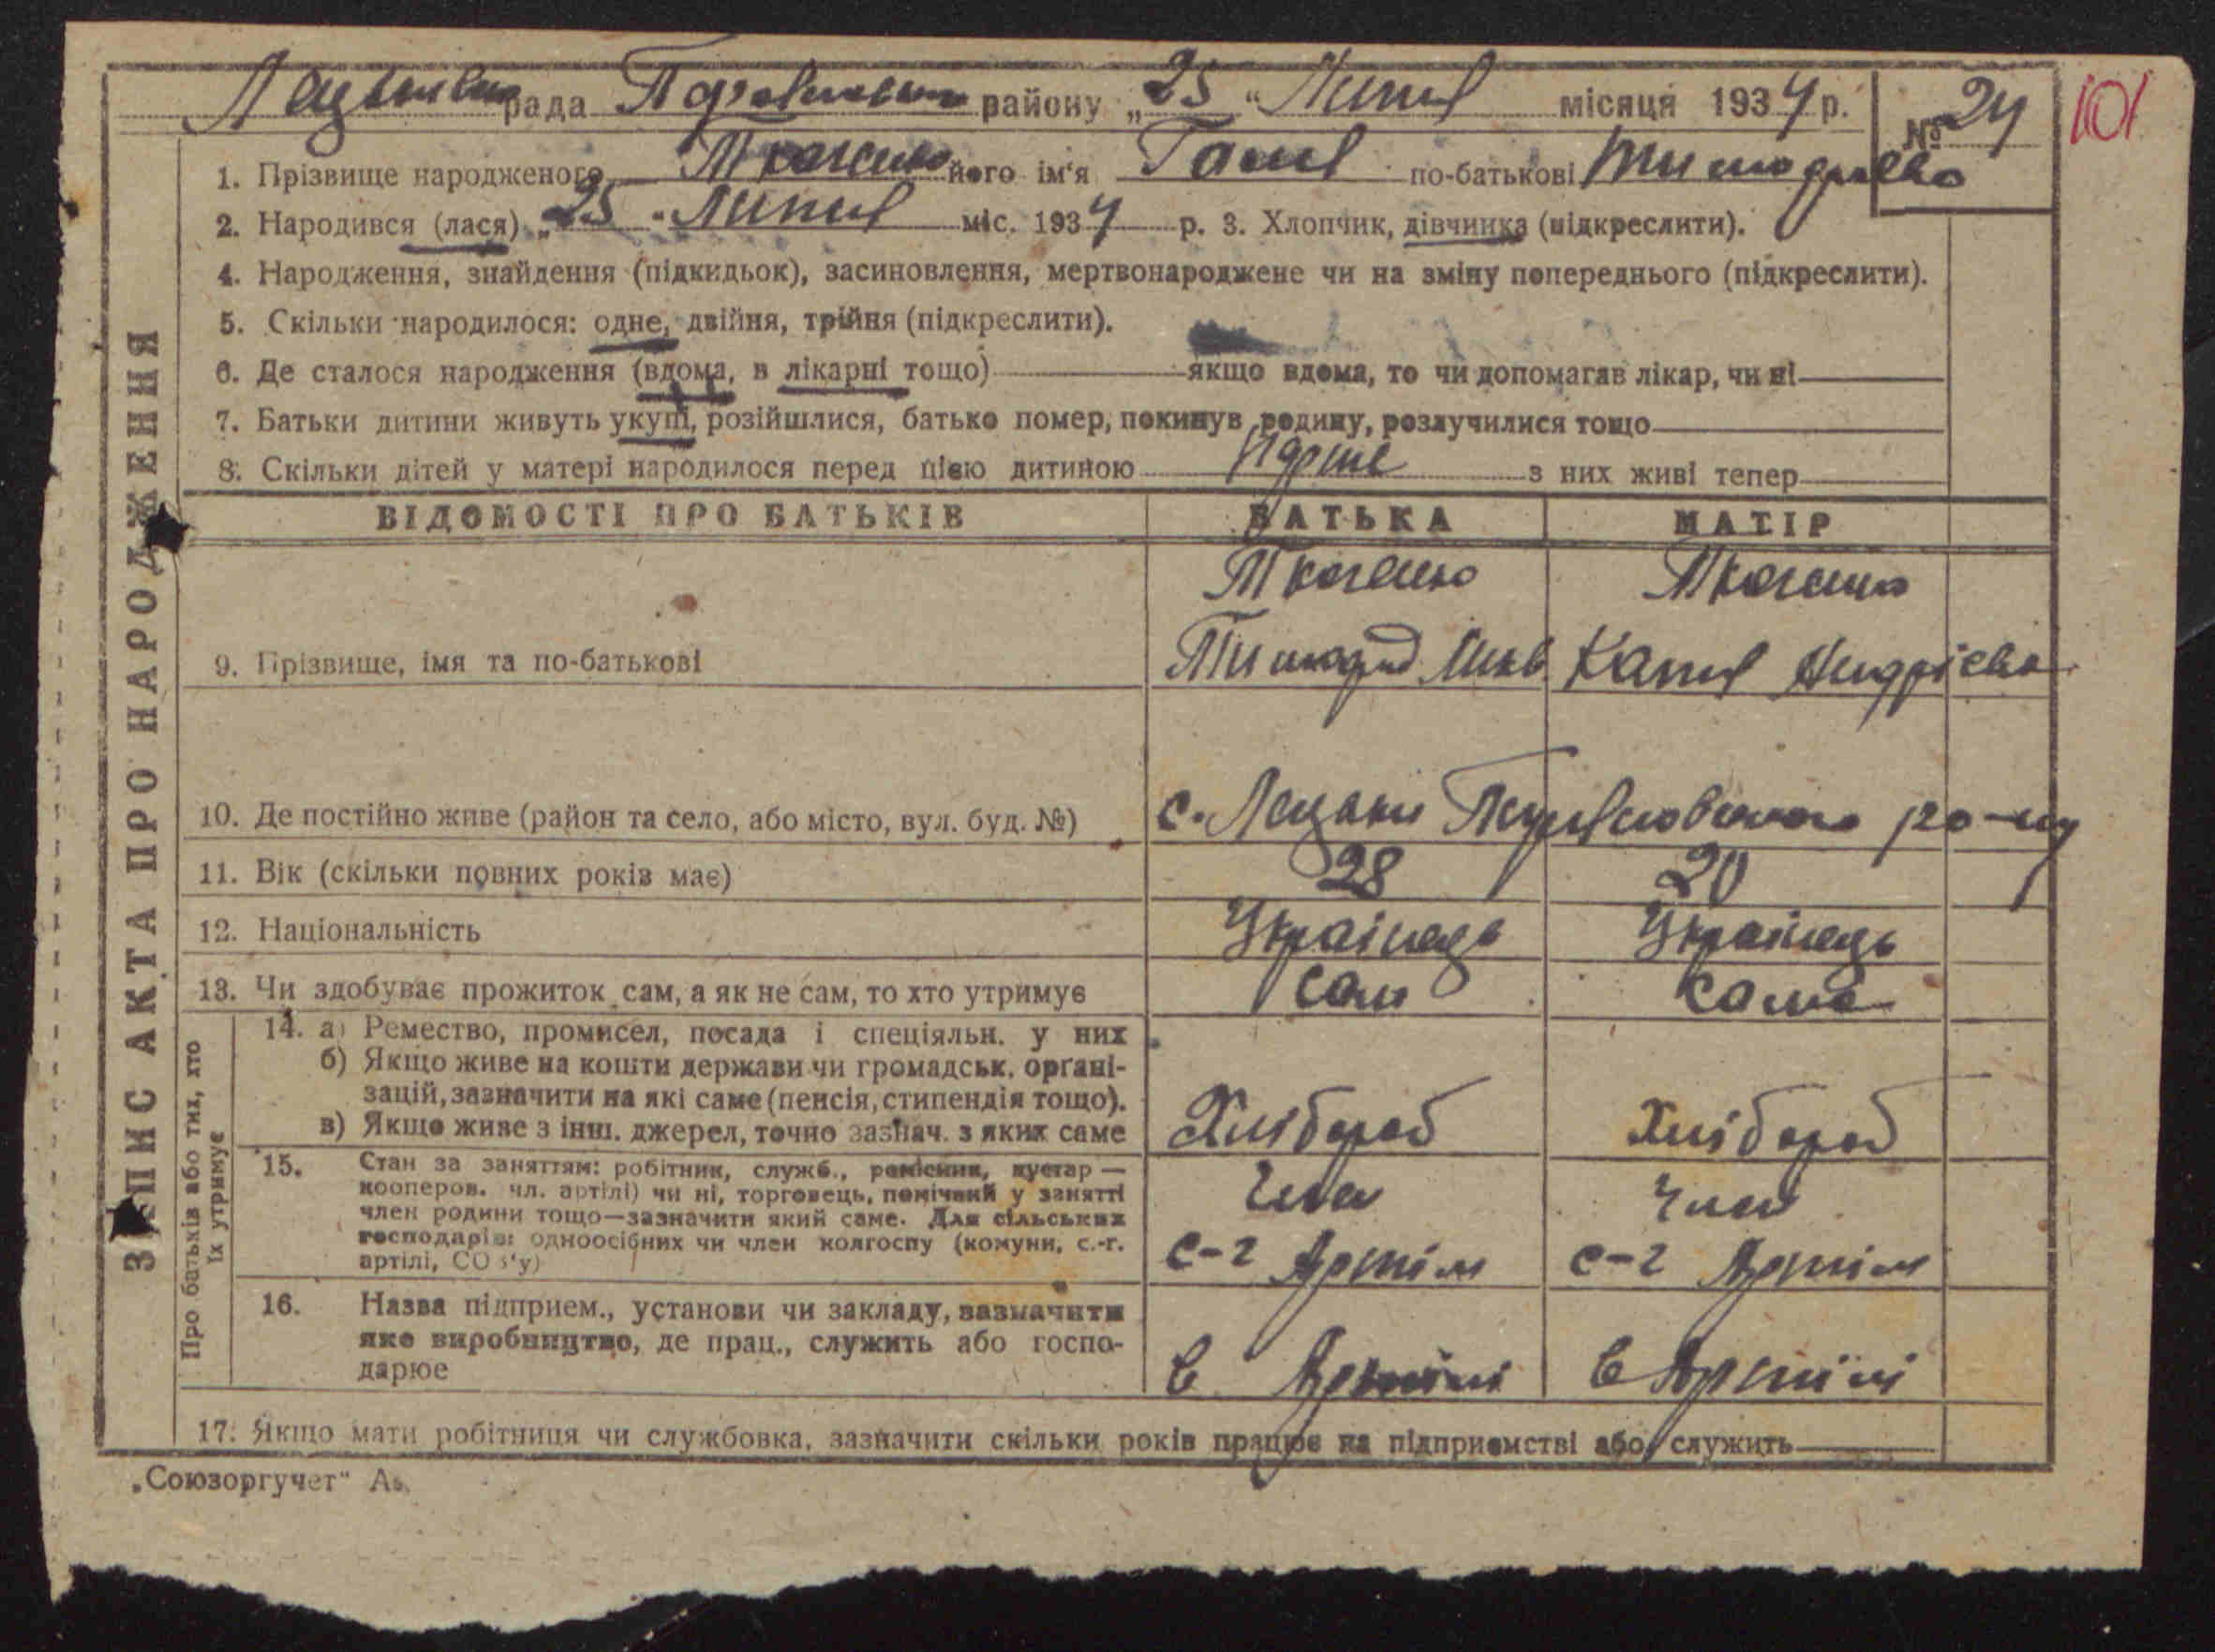 рада району „25“ Липня місяця 1934 р. № 24 101
1. Прізвище народженого Ткаченко його ім'я Галя по-батькові
2. Народився (лася) „25“ Липня міс. 1934 р. 3. Хлопчик, дівчинка (підкреслити).
4. Народження, знайдення (підкидьок), засиновлення, мертвонароджене чи на зміну попереднього (підкреслити).
5. Скільки народилося: одне, двійня, трійня (підкреслити).
6. Де сталося народження (вдома, в лікарні тощо) якщо вдома, то чи допомагав лікар, чи ні
7. Батьки дитини живуть укупі, розійшлися, батько помер, покинув родину, розлучилися тощо
8. Скільки дітей у матері народилося перед цією дитиною з них живі тепер
ЗАПИС АКТА ПРО НАРОДЖЕННЯ
ВІДОМОСТІ ПРО БАТЬКІВ БАТЬКА МАТІР
Ткаченко Ткаченко
9. Прізвище, імя та по-батькові
10. Де постійно живе (район та село, або місто, вул. буд. №) с. Лецьки
11. Вік (скільки повних років має) 28 20
12. Національність Українець Українець
13. Чи здобуває прожиток сам, а як не сам, то хто утримує сам сама
Про батьків або тих, хто
їх утримує
14. а) Ремество, промисел, посада і спеціяльн. у них
б) Якщо живе на кошти держави чи громадськ. орґані-
зацій, зазначити на які саме (пенсія, стипендія тощо).
в) Якщо живе з інш. джерел, точно зазнач. з яких саме Хлібороб Хлібороб
15. Стан за заняттям: робітник, служб., ремісник, кустар —
кооперов. чл. артілі) чи ні, торговець, помічний у занятті
член родини тощо—зазначити який саме. Для сільських Член Член
господарів: одноосібних чи член колгоспу (комуни, с.-г.
артілі, СОЗ'у) с-г Артіли с-г Артіли
16. Назва підприєм., установи чи закладу, зазначити
яке виробництво, де прац., служить або госпо-
дарює в Артілі в Артілі
17. Якщо мати робітниця чи службовка, зазначити скільки років працює на підприємстві або служить
„Союзоргучет“